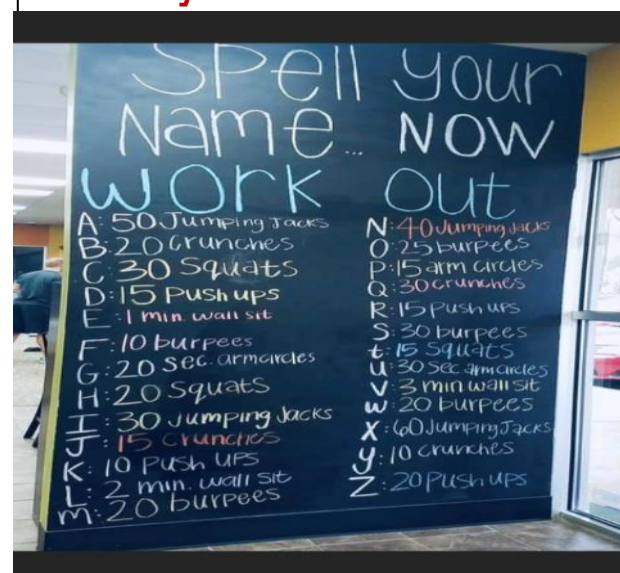 Spell your
Name... NOW
work out
A: 50 Jumping Jacks
B: 20 Crunches
C: 30 Squats
D: 15 Push ups
E: 1 min. wall sit
F: 10 burpees
G: 20 sec. arm circles
H: 20 Squats
I: 30 Jumping Jacks
J: 15 Crunches
K: 10 Push ups
L: 2 min. wall sit
M: 20 burpees
N: 40 Jumping Jacks
O: 25 burpees
P: 15 arm circles
Q: 30 crunches
R: 15 push ups
S: 30 burpees
t: 15 Squats
U: 30 sec arm circles
V: 3 min wall sit
W: 20 burpees
X: 60 Jumping Jacks
y: 10 crunches
Z: 20 push ups